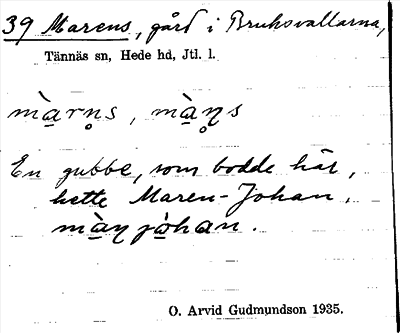 39 Marens, gård i Bruksvallarna,
Tännäs sn, Hede hd, Jtl. l.
màrn̥s, màn̥s
En gubbe, som bodde här,
hette Maren-Johan,
màn jòhan.
O. Arvid Gudmundson 1935.